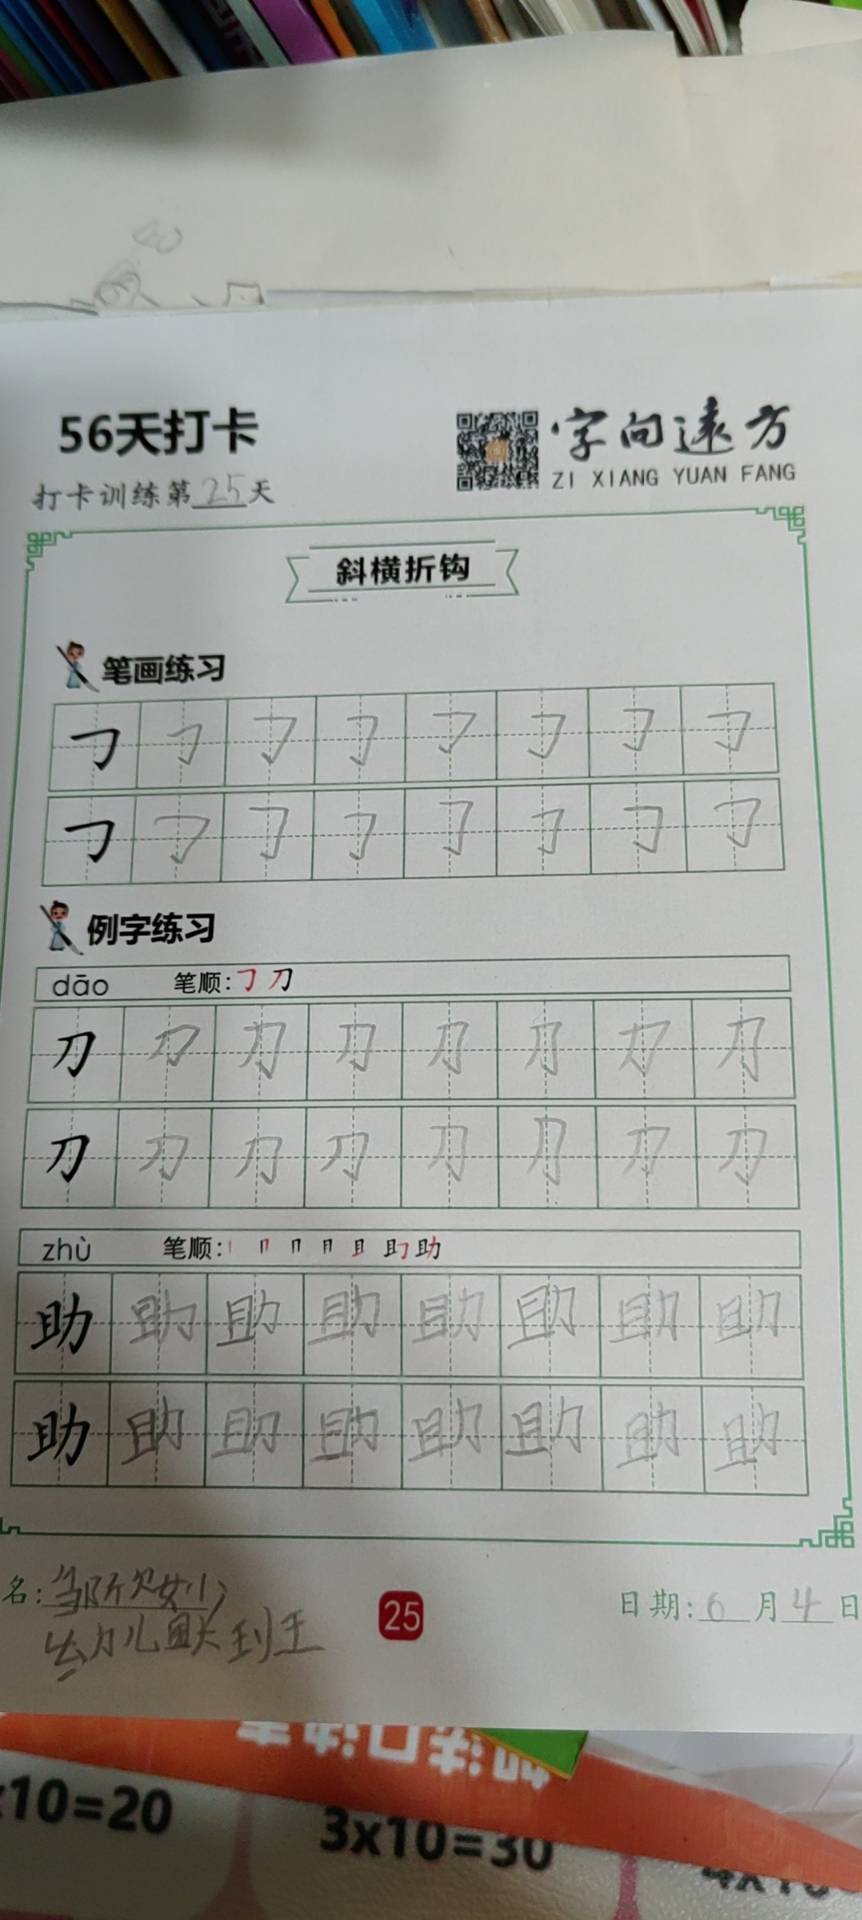 56天打卡
字向远方
ZI XIANG YUAN FANG
打卡训练第25天
斜横折钩
笔画练习
㇆ ㇆ ㇆ ㇆ ㇆ ㇆ ㇆ ㇆
㇆ ㇆ ㇆ ㇆ ㇆ ㇆ ㇆ ㇆
例字练习
dāo 笔顺:㇆ 刀
刀 刀 刀 刀 刀 刀 刀 刀
刀 刀 刀 刀 刀 刀 刀 刀
zhù 笔顺: 助
助 助 助 助 助 助 助 助
助 助 助 助 助 助 助 助
名:邹昕妙
幼儿
25
日期:6月4日
10=20
3x10=30